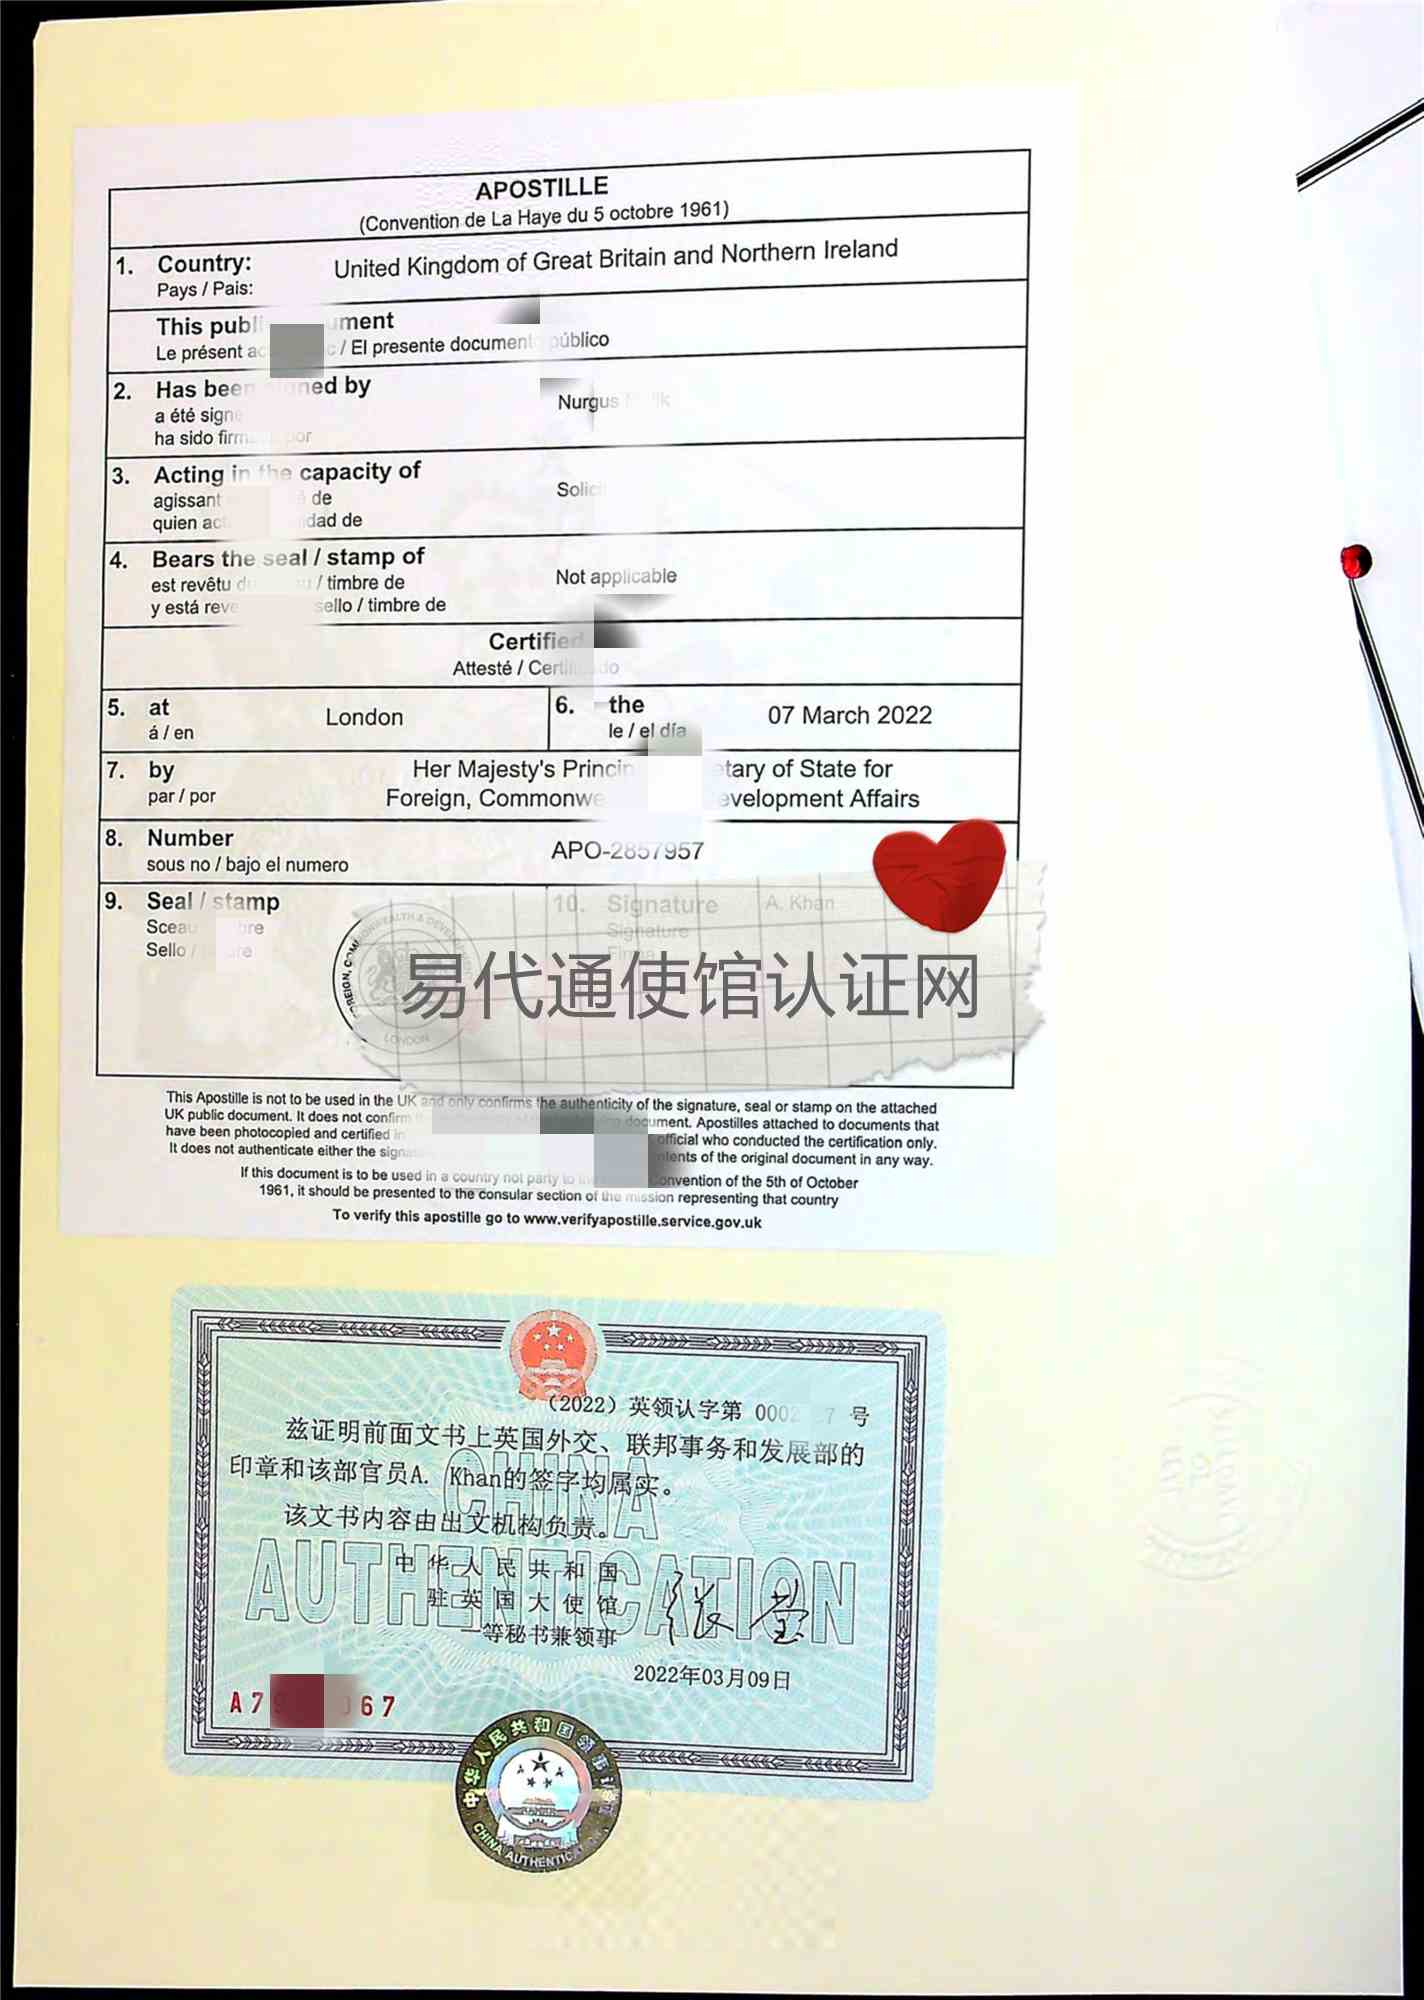 APOSTILLE
(Convention de La Haye du 5 octobre 1961)
1. Country: United Kingdom of Great Britain and Northern Ireland
Pays / Pais:
This publ ument
Le présent ac / El presente document público
2. Has been igned by Nurgus
a été signé
ha sido firm por
3. Acting in the capacity of Solici
agissant de
quien act idad de
4. Bears the seal / stamp of Not applicable
est revêtu du / timbre de
y está reve sello / timbre de
Certified
Attesté / Certi do
5. at London 6. the 07 March 2022
á / en le / el día
7. by Her Majesty's Princip etary of State for
par / por Foreign, Commonwe evelopment Affairs
8. Number APO-2857957
sous no / bajo el numero
9. Seal / stamp 10. Signature A. Khan
Sceau bre Signature
Sello / re Firma
LONDON
易代通使馆认证网
This Apostille is not to be used in the UK and only confirms the authenticity of the signature, seal or stamp on the attached
UK public document. It does not confirm document. Apostilles attached to documents that
have been photocopied and certified in official who conducted the certification only.
It does not authenticate either the signat ntents of the original document in any way.
If this document is to be used in a country not party to Convention of the 5th of October
1961, it should be presented to the consular section of the mission representing that country
To verify this apostille go to www.verifyapostille.service.gov.uk
（2022）英领认字第 0002 7 号
兹证明前面文书上英国外交、联邦事务和发展部的
印章和该部官员A. Khan的签字均属实。
该文书内容由出文机构负责。
CHINA
AUTHENTICATION
中华人民共和国
驻英国大使馆
一等秘书兼领事
2022年03月09日
A7 067
中华人民共和国领事
CHINA AUTHENTICA